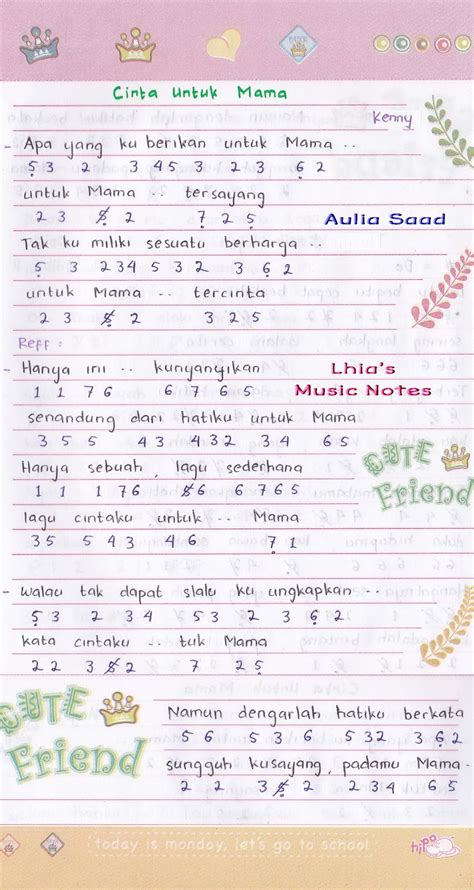 Cinta Untuk Mama
Kenny
- Apa yang ku berikan untuk Mama . .
5 3 2 3 4 5 3 2 3 6 2
untuk Mama . . tersayang
2 3 5 2 7 2 5
Aulia Saad
Tak ku miliki sesuatu berharga . .
5 3 2 3 4 5 3 2 3 6 2
untuk Mama . . tercinta
2 3 5 2 3 2 5
Reff :
- Hanya ini . . kunyanyikan
1 1 7 6 6 7 6 5
Lhia's
Music Notes
senandung dari hatiku untuk Mama
3 5 5 4 3 4 3 2 3 4 6 5
Hanya sebuah lagu sederhana
1 1 1 7 6 5 6 6 7 6 5
lagu cintaku untuk . . Mama
3 5 5 4 3 4 6 7 1
CUTE
Friend
- walau tak dapat slalu ku ungkapkan . .
5 3 2 3 4 5 3 2 3 6 2
kata cintaku . . tuk Mama
2 2 3 5 2 7 2 5
CUTE
Friend
Namun dengarlah hatiku berkata
5 6 5 3 6 5 3 2 3 6 2
sungguh kusayang, padamu Mama -
2 2 3 5 2 2 3 4 6 5
today is monday, let's go to school
hipo